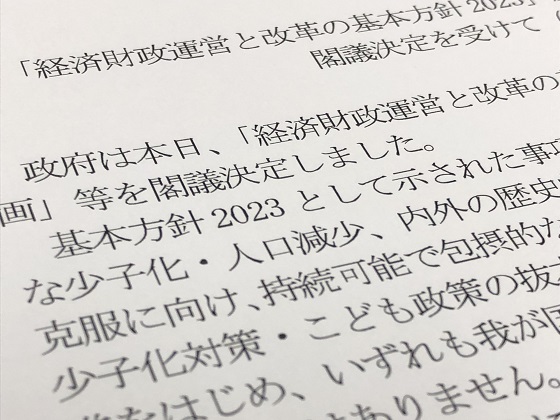 「経済財政運営と改革の基本方針2023」
閣議決定を受けて
政府は本日、「経済財政運営と改革の
画」等を閣議決定しました。
基本方針2023として示された事項
な少子化・人口減少、内外の歴史
克服に向け、持続可能で包摂的な
少子化対策・こども政策の抜
をはじめ、いずれも我が国
はありません。